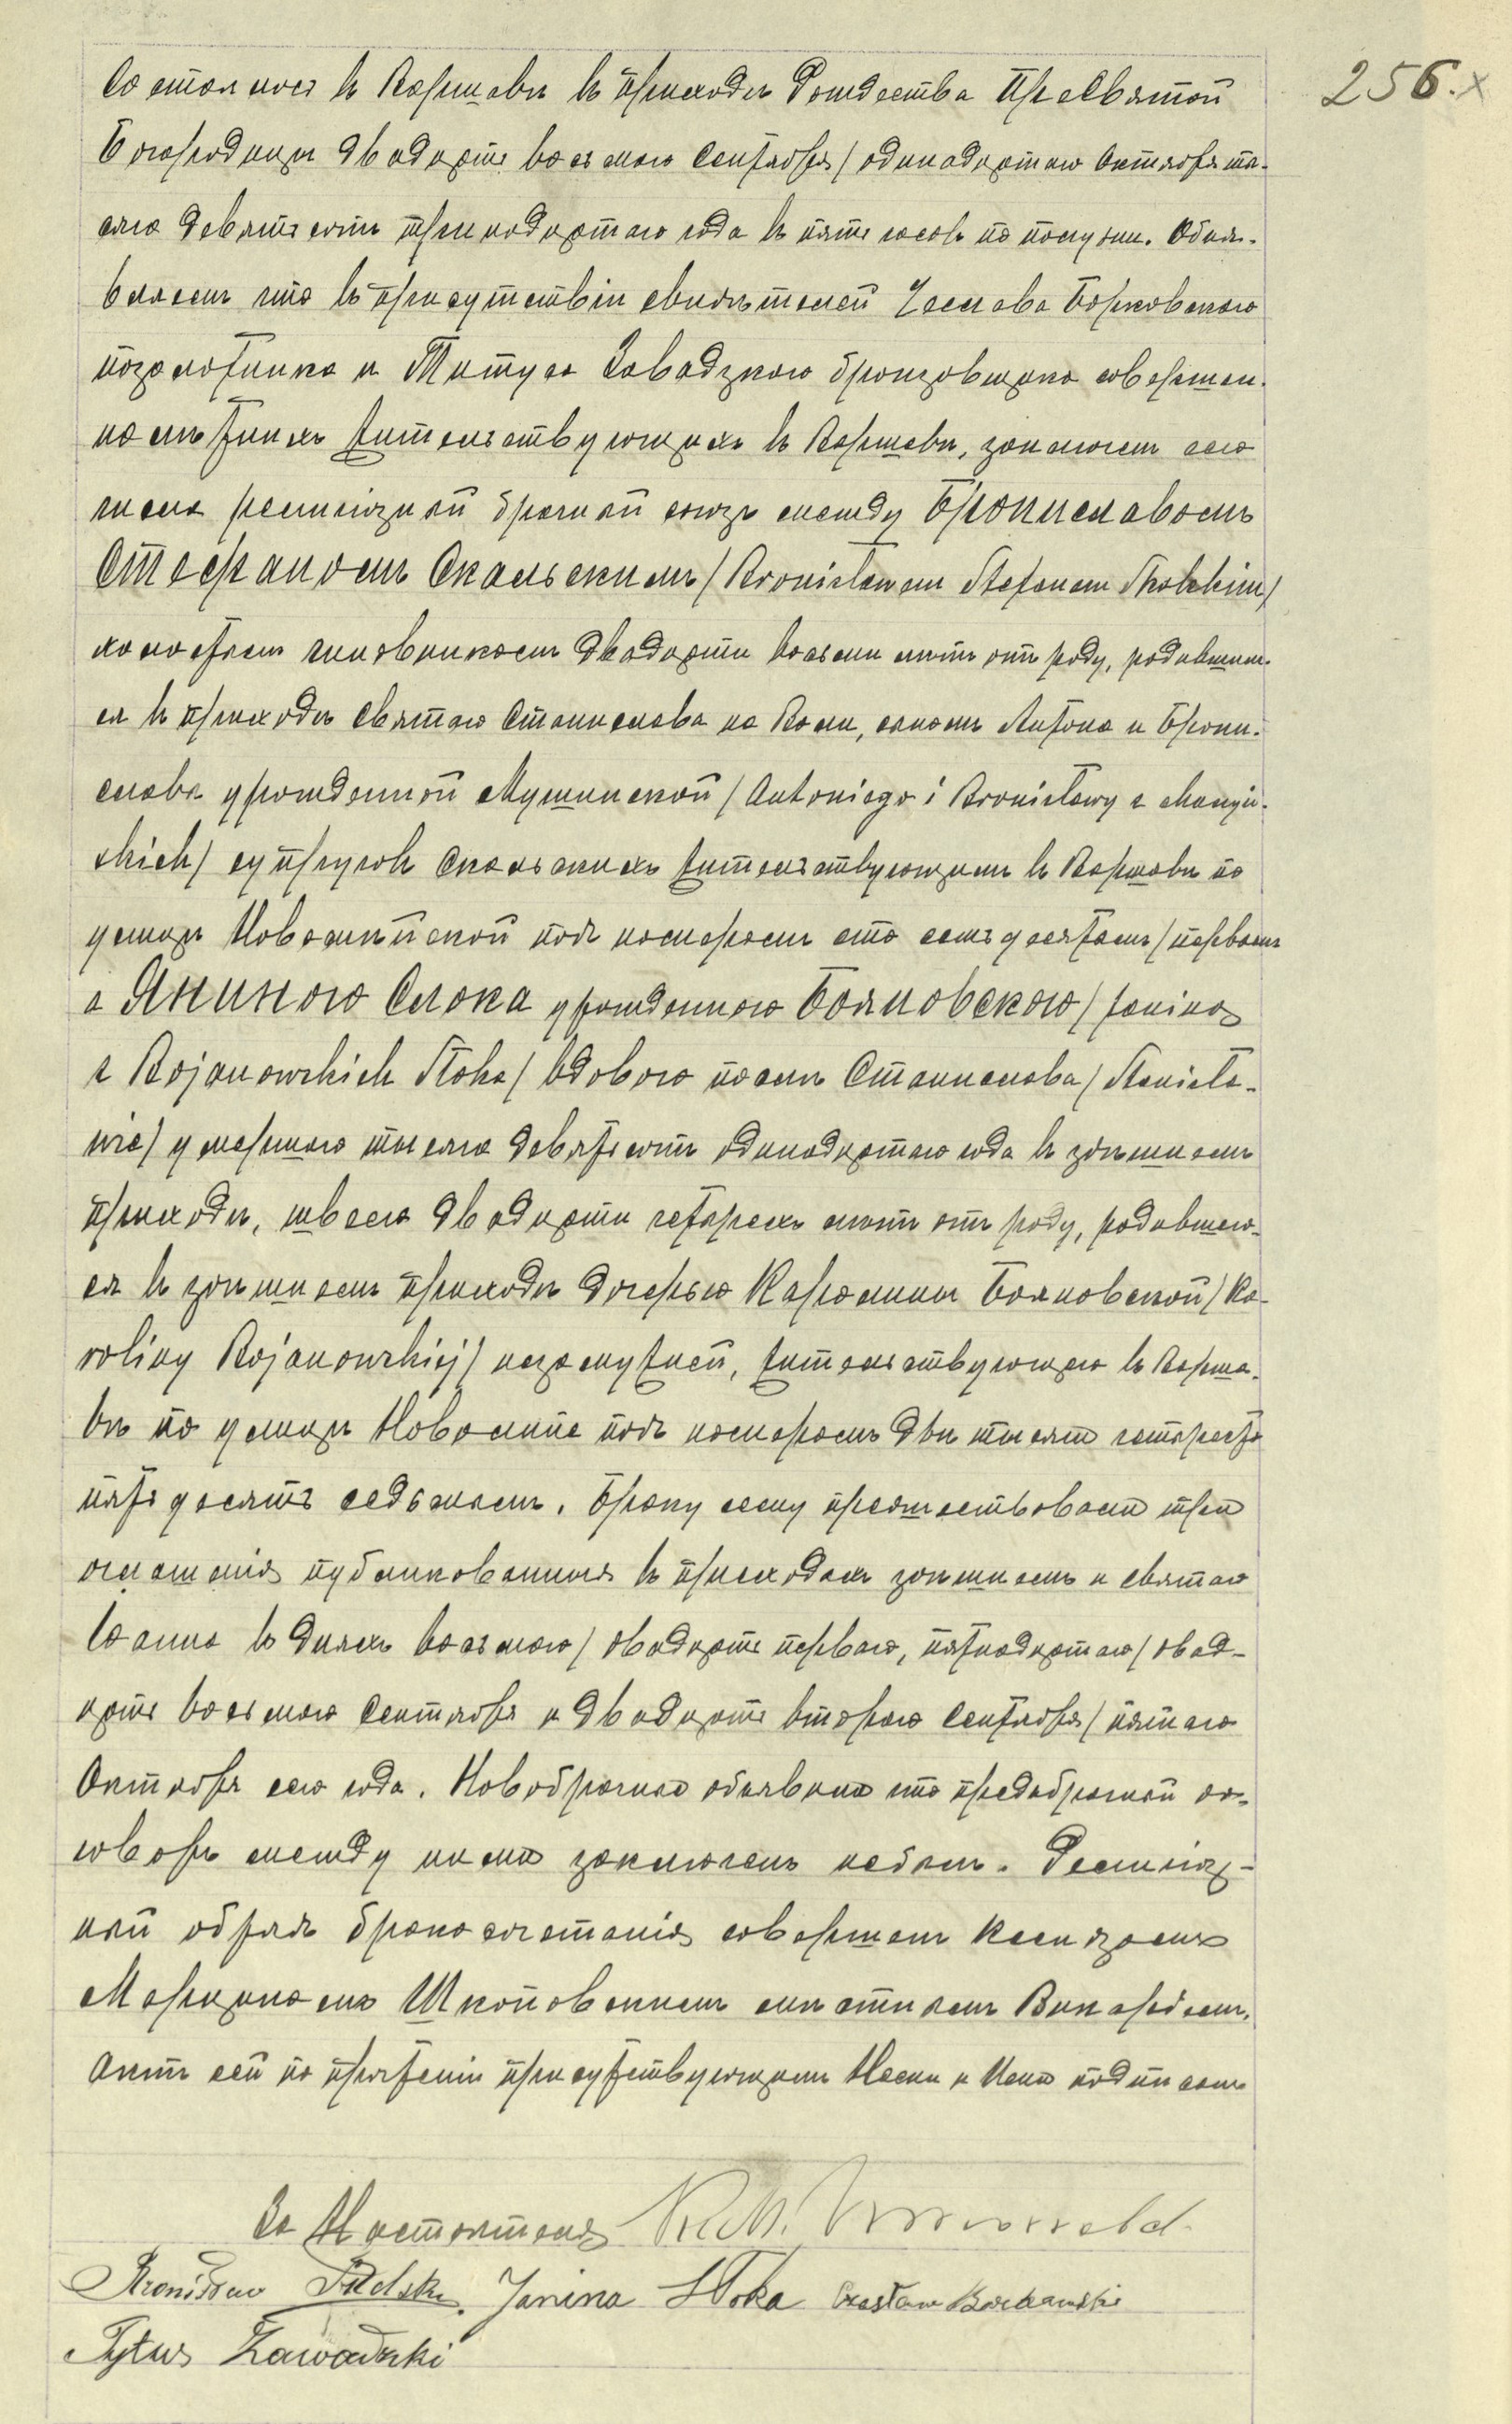 256.
Состоялось въ Варшавѣ въ приходѣ Рождества Пресвятой
Богородицы двадцать восьмаго Сентября / одинадцатаго Октября ты-
сяча девятьсотъ тринадцатаго года въ пять часовъ по полудни. Объя-
вляемъ что въ присутствіи свидѣтелей Чеслава Борковскаго
позолотчика и Титуса Завадзкаго бронзовщика совершен-
нолѣтнихъ жительствующихъ въ Варшавѣ, заключенъ сего
числа религіозный брачный союзъ между Брониславомъ
Стефаномъ Скальскимъ / Bronisławem Stefanem Skalskim /
холостымъ чиновникомъ двадцати восьми лѣтъ отъ роду, родившим-
ся въ приходѣ Святаго Станислава на Воли, сыномъ Антона и Брони-
славы урожденной Мушинской / Antoniego i Bronisławy z Muszyń-
skich / супруговъ Скальскихъ жительствующимъ въ Варшавѣ по
улицѣ Новолипской подъ номеромъ сто семьдесятымъ / первымъ
а Яниною Слока урожденною Бояновскою / Janiną
z Bojanowskich Słoka / вдовою послѣ Станислава / Stanisła-
wie / умершаго тысяча девятьсотъ одинадцатаго года въ здѣшнемъ
приходѣ, швеею двадцати четырехъ лѣтъ отъ роду, родившею-
ся въ здѣшнемъ приходѣ дочерью Каролины Бояновской / Ka-
roliny Bojanowskiej / незамужней, жительствующею въ Варша-
вѣ по улицѣ Новолипе подъ номеромъ двѣ тысячи четыреста
пятьдесятъ седьмымъ. Браку сему предшествовали три
оглашенія публикованныя въ приходахъ здѣшнемъ и Святаго
Іоанна въ дняхъ восьмаго / двадцать перваго, пятнадцатаго / двад-
цать восьмаго Сентября и двадцать втораго Сентября / пятаго
Октября сего года. Новобрачные объявили что предбрачный до-
говоръ между ними заключенъ небылъ. Религіоз-
ный обрядъ бракосочетанія совершенъ Ксендзомъ
Марціномъ Шкоповскимъ мѣстнымъ Викаріемъ.
Актъ сей по прочтеніи присутствующимъ Нами и Ими подписанъ
За Настоятеля
Bronisław Skalski. Janina Słoka Czesław Borkowski
Tytus Zawadzki